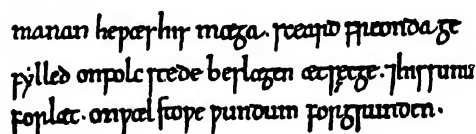 manan heƿæs his mæga. sceard freonda ge
fẏlled onfolc stede beslagen æt sęcge. ⁊his sunu
forlæt. onƿæl stoƿe ƿundum forgrunden.